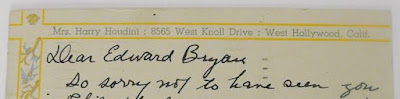 Mrs. Harry Houdini : 8565 West Knoll Drive : West Hollywood, Calif.
Dear Edward Bryan
So sorry not to have seen you